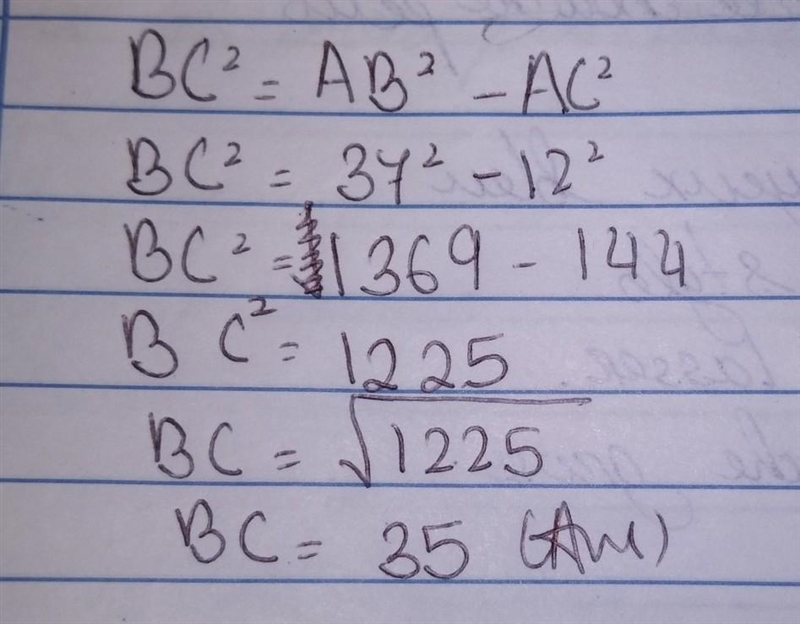 BC² = AB² - AC²
BC² = 37² - 12²
BC² = 1369 - 144
BC² = 1225
BC = √1225
BC = 35 (Ans)